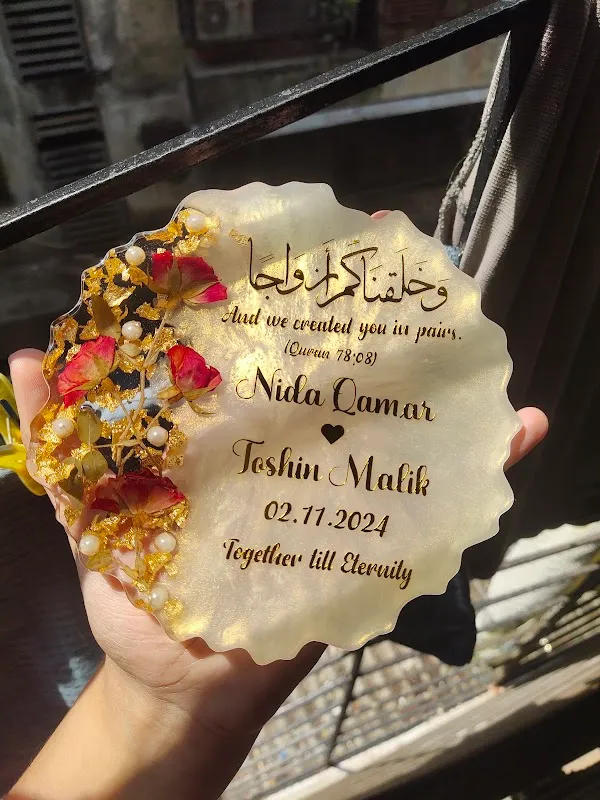 وَخَلَقْنَاكُمْ أَزْوَاجًا
And we created you in pairs.
(Quran 78:08)
Nida Qamar
Toshin Malik
02.11.2024
Together till Eternity